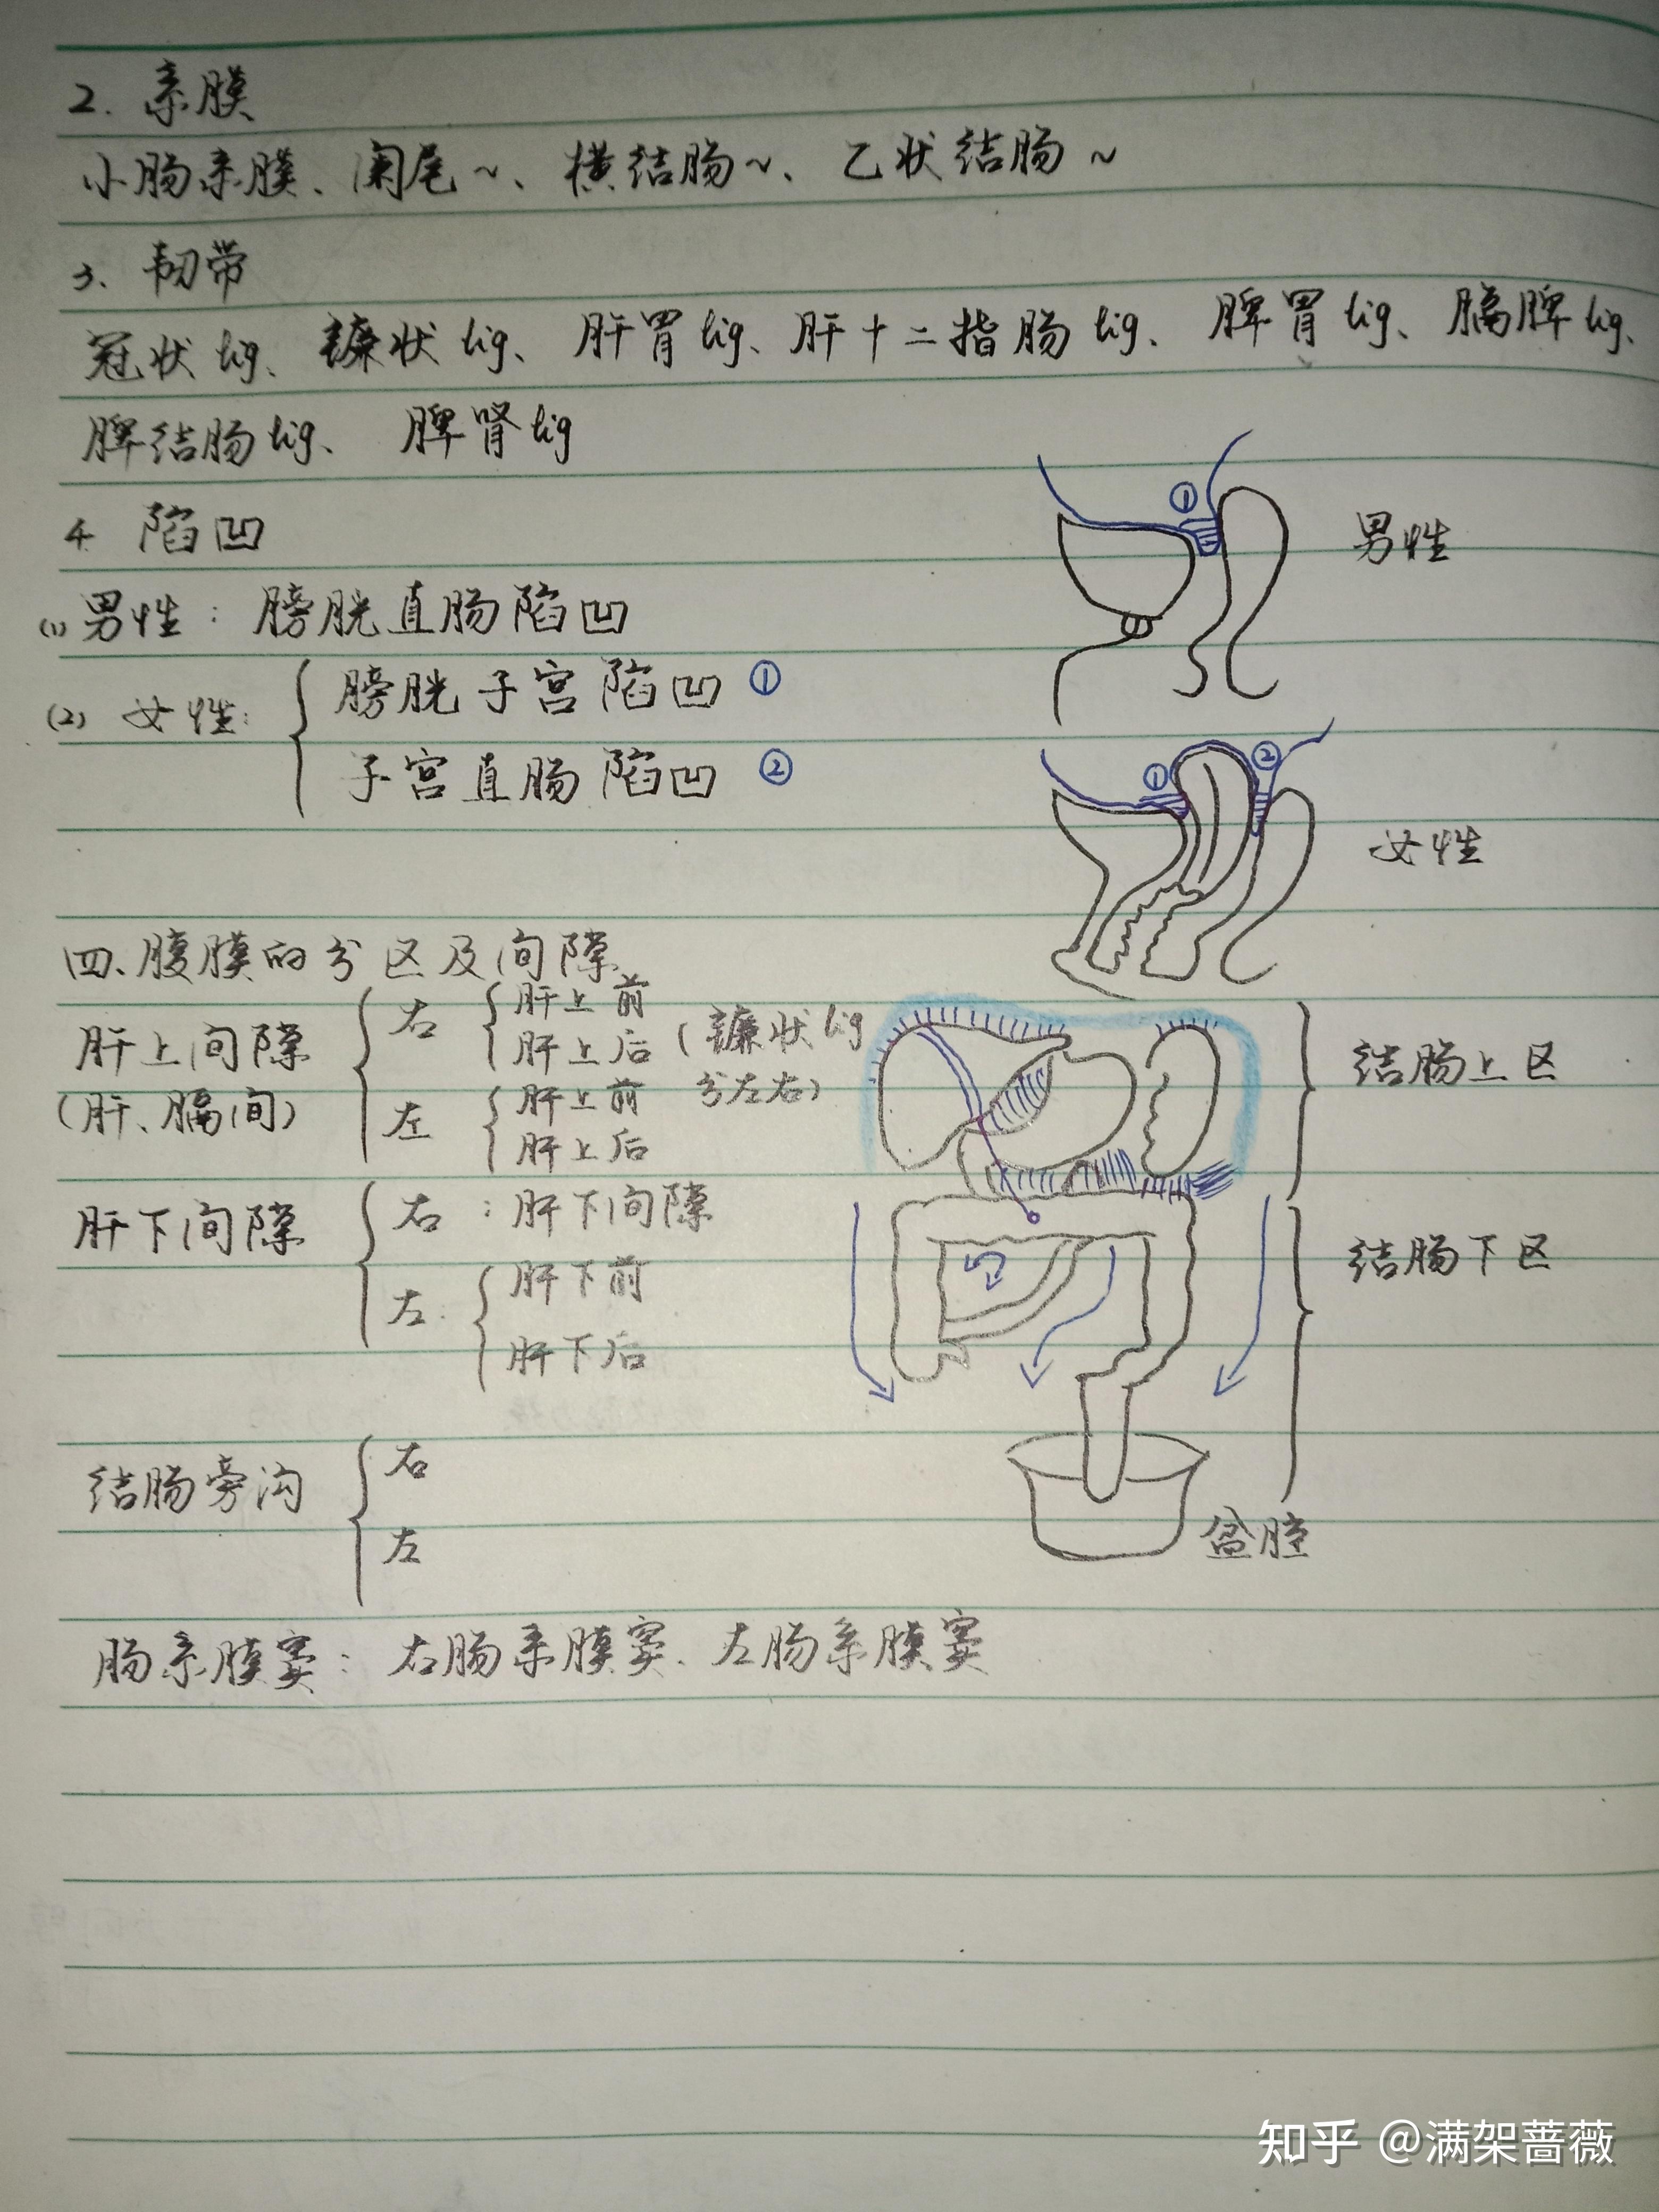 2. 系膜
小肠系膜、阑尾~、横结肠~、乙状结肠~
3. 韧带
冠状lig、镰状lig、肝胃lig、肝十二指肠lig、脾胃lig、膈脾lig、
脾结肠lig、脾肾lig
4. 陷凹
(1) 男性：膀胱直肠陷凹
(2) 女性：
膀胱子宫陷凹 ①
子宫直肠陷凹 ②
①
男性
① ②
女性
四、腹膜的分区及间隙
肝上间隙
(肝、膈间)
右
肝上前
肝上后
(镰状lig
分左右)
左
肝上前
肝上后
肝下间隙
右：肝下间隙
左.
肝下前
肝下后
结肠旁沟
右
左
结肠上区
结肠下区
盆腔
肠系膜窦：右肠系膜窦、左肠系膜窦
知乎 @满架蔷薇